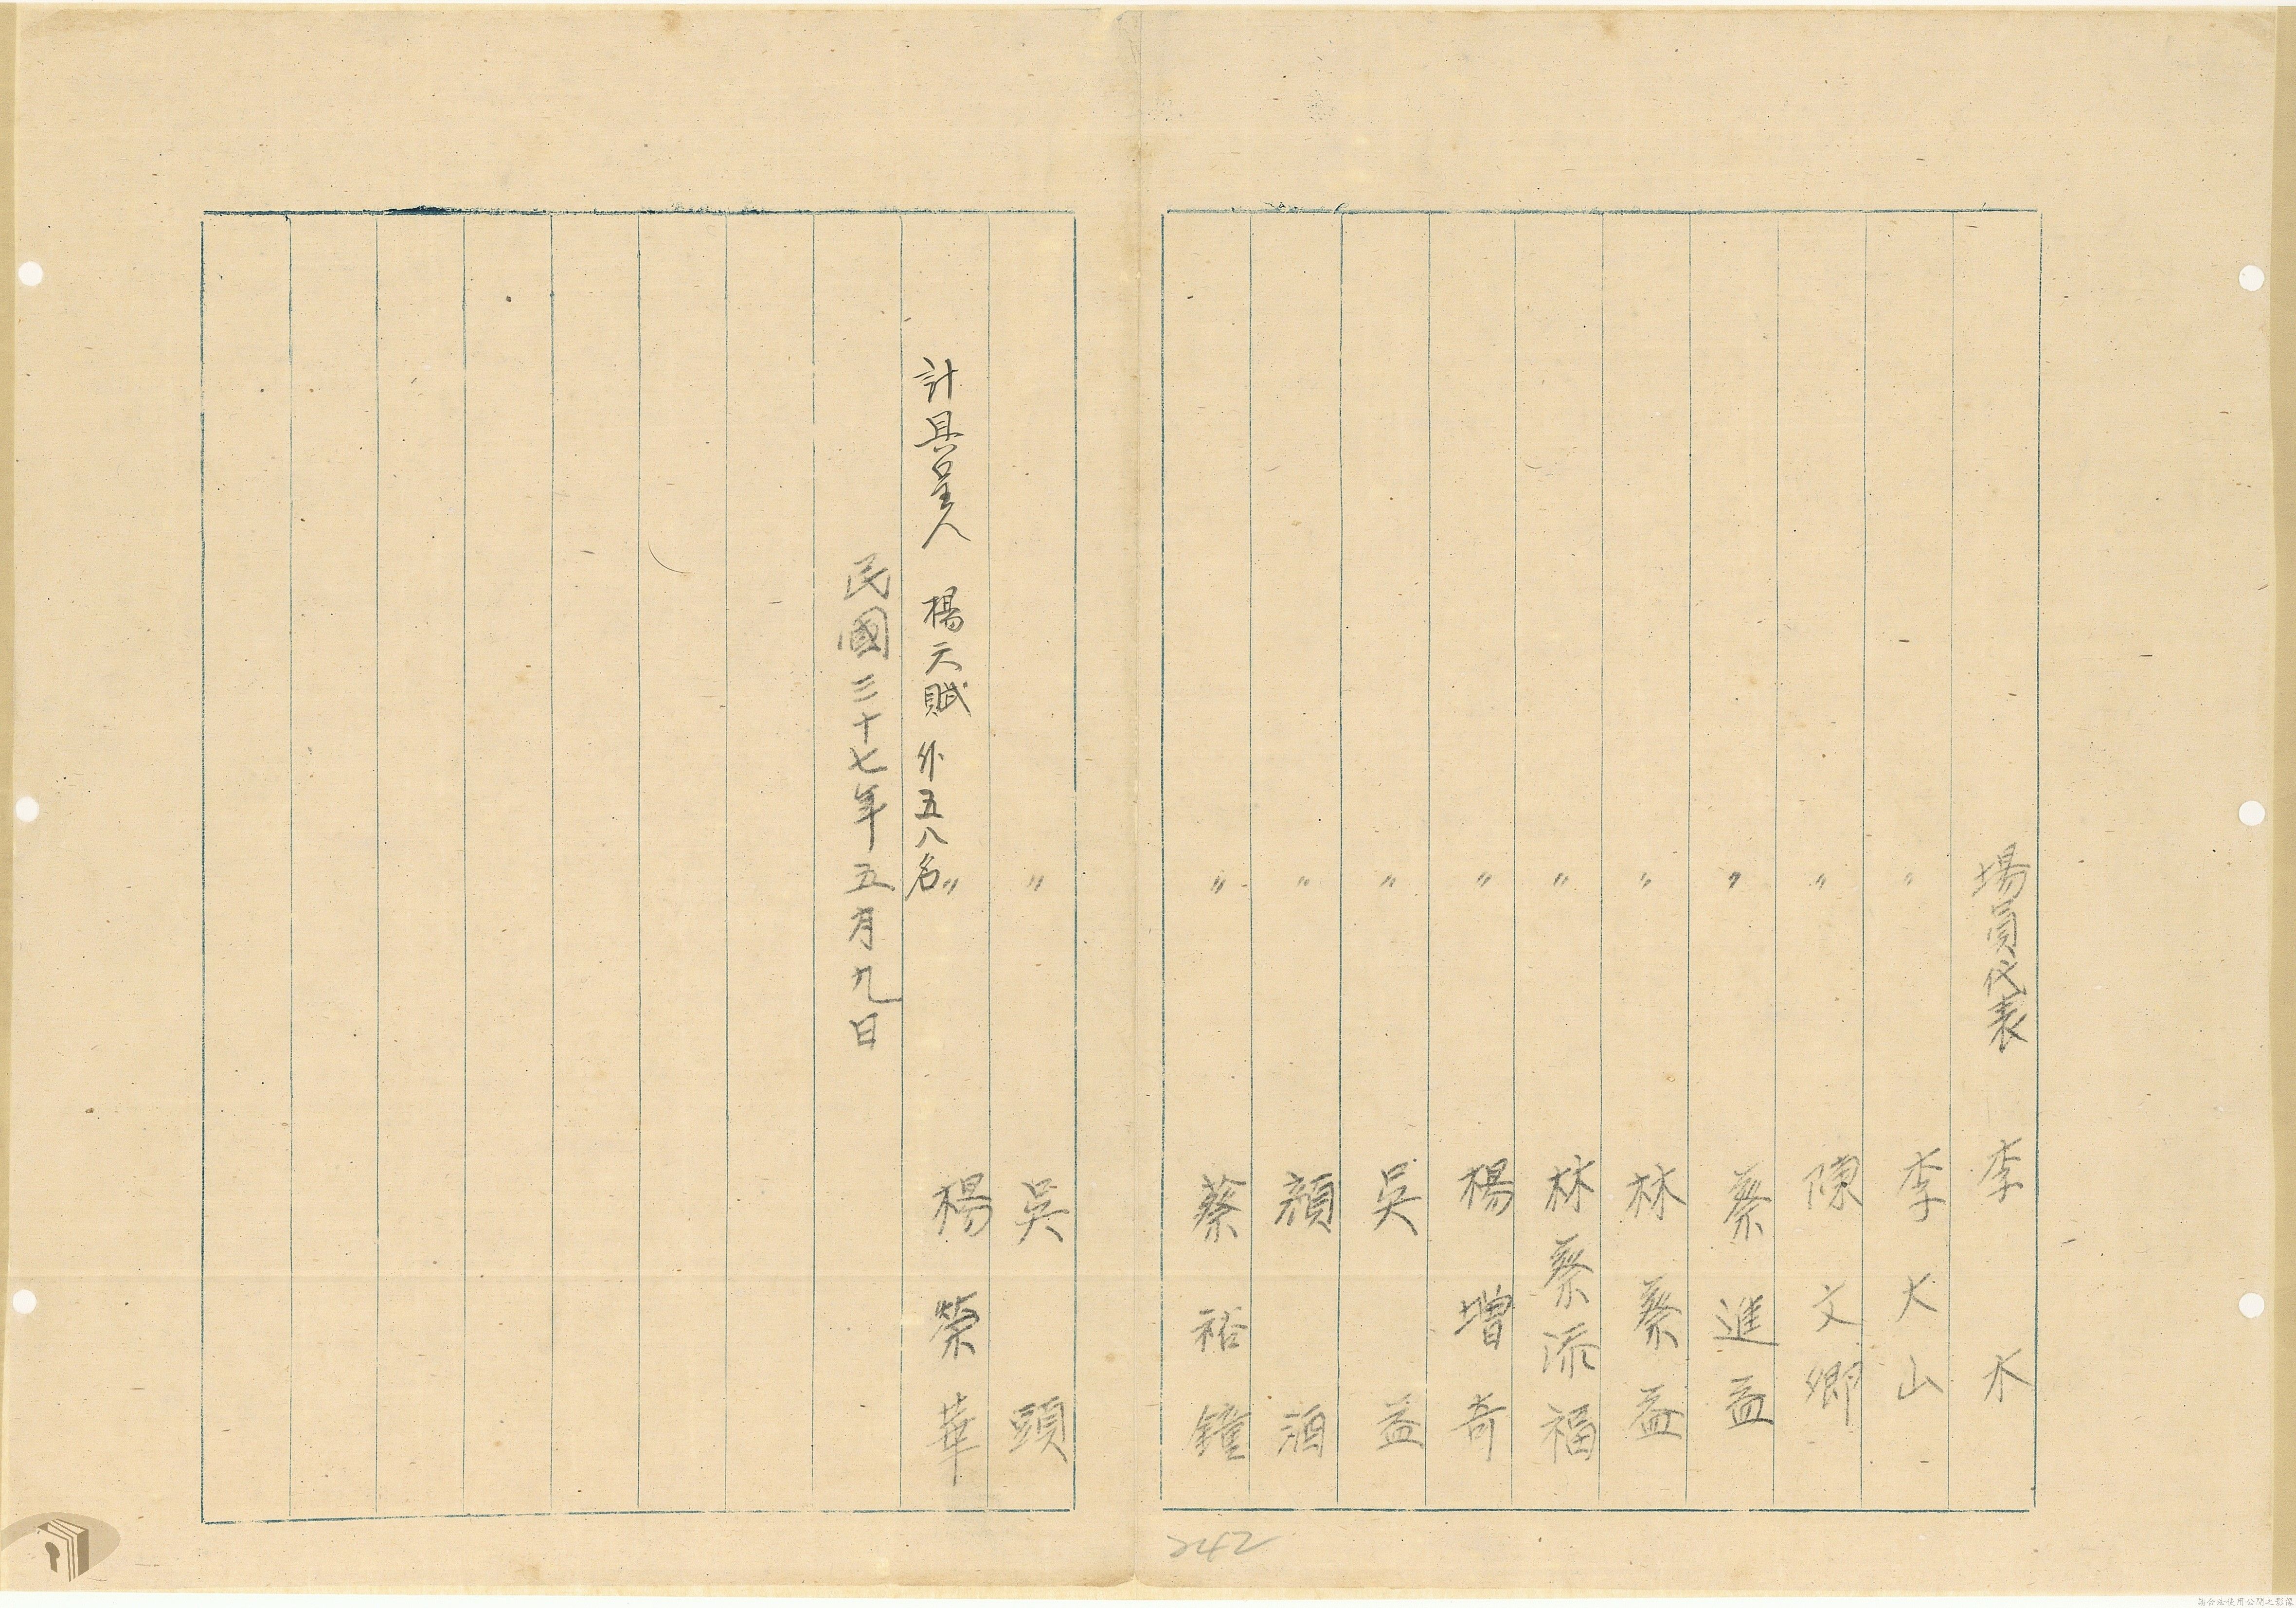 場員代表 李水
〃 李大山
〃 陳文鄉
〃 蔡進益
〃 林蔡益
〃 林蔡添福
〃 楊增奇
〃 吳益
〃 顏酒
〃 蔡裕鐘
〃 吳頭
〃 楊榮華
計具呈人 楊天賦 外五八名
民國三十七年五月九日
242
請合法使用公開之影像